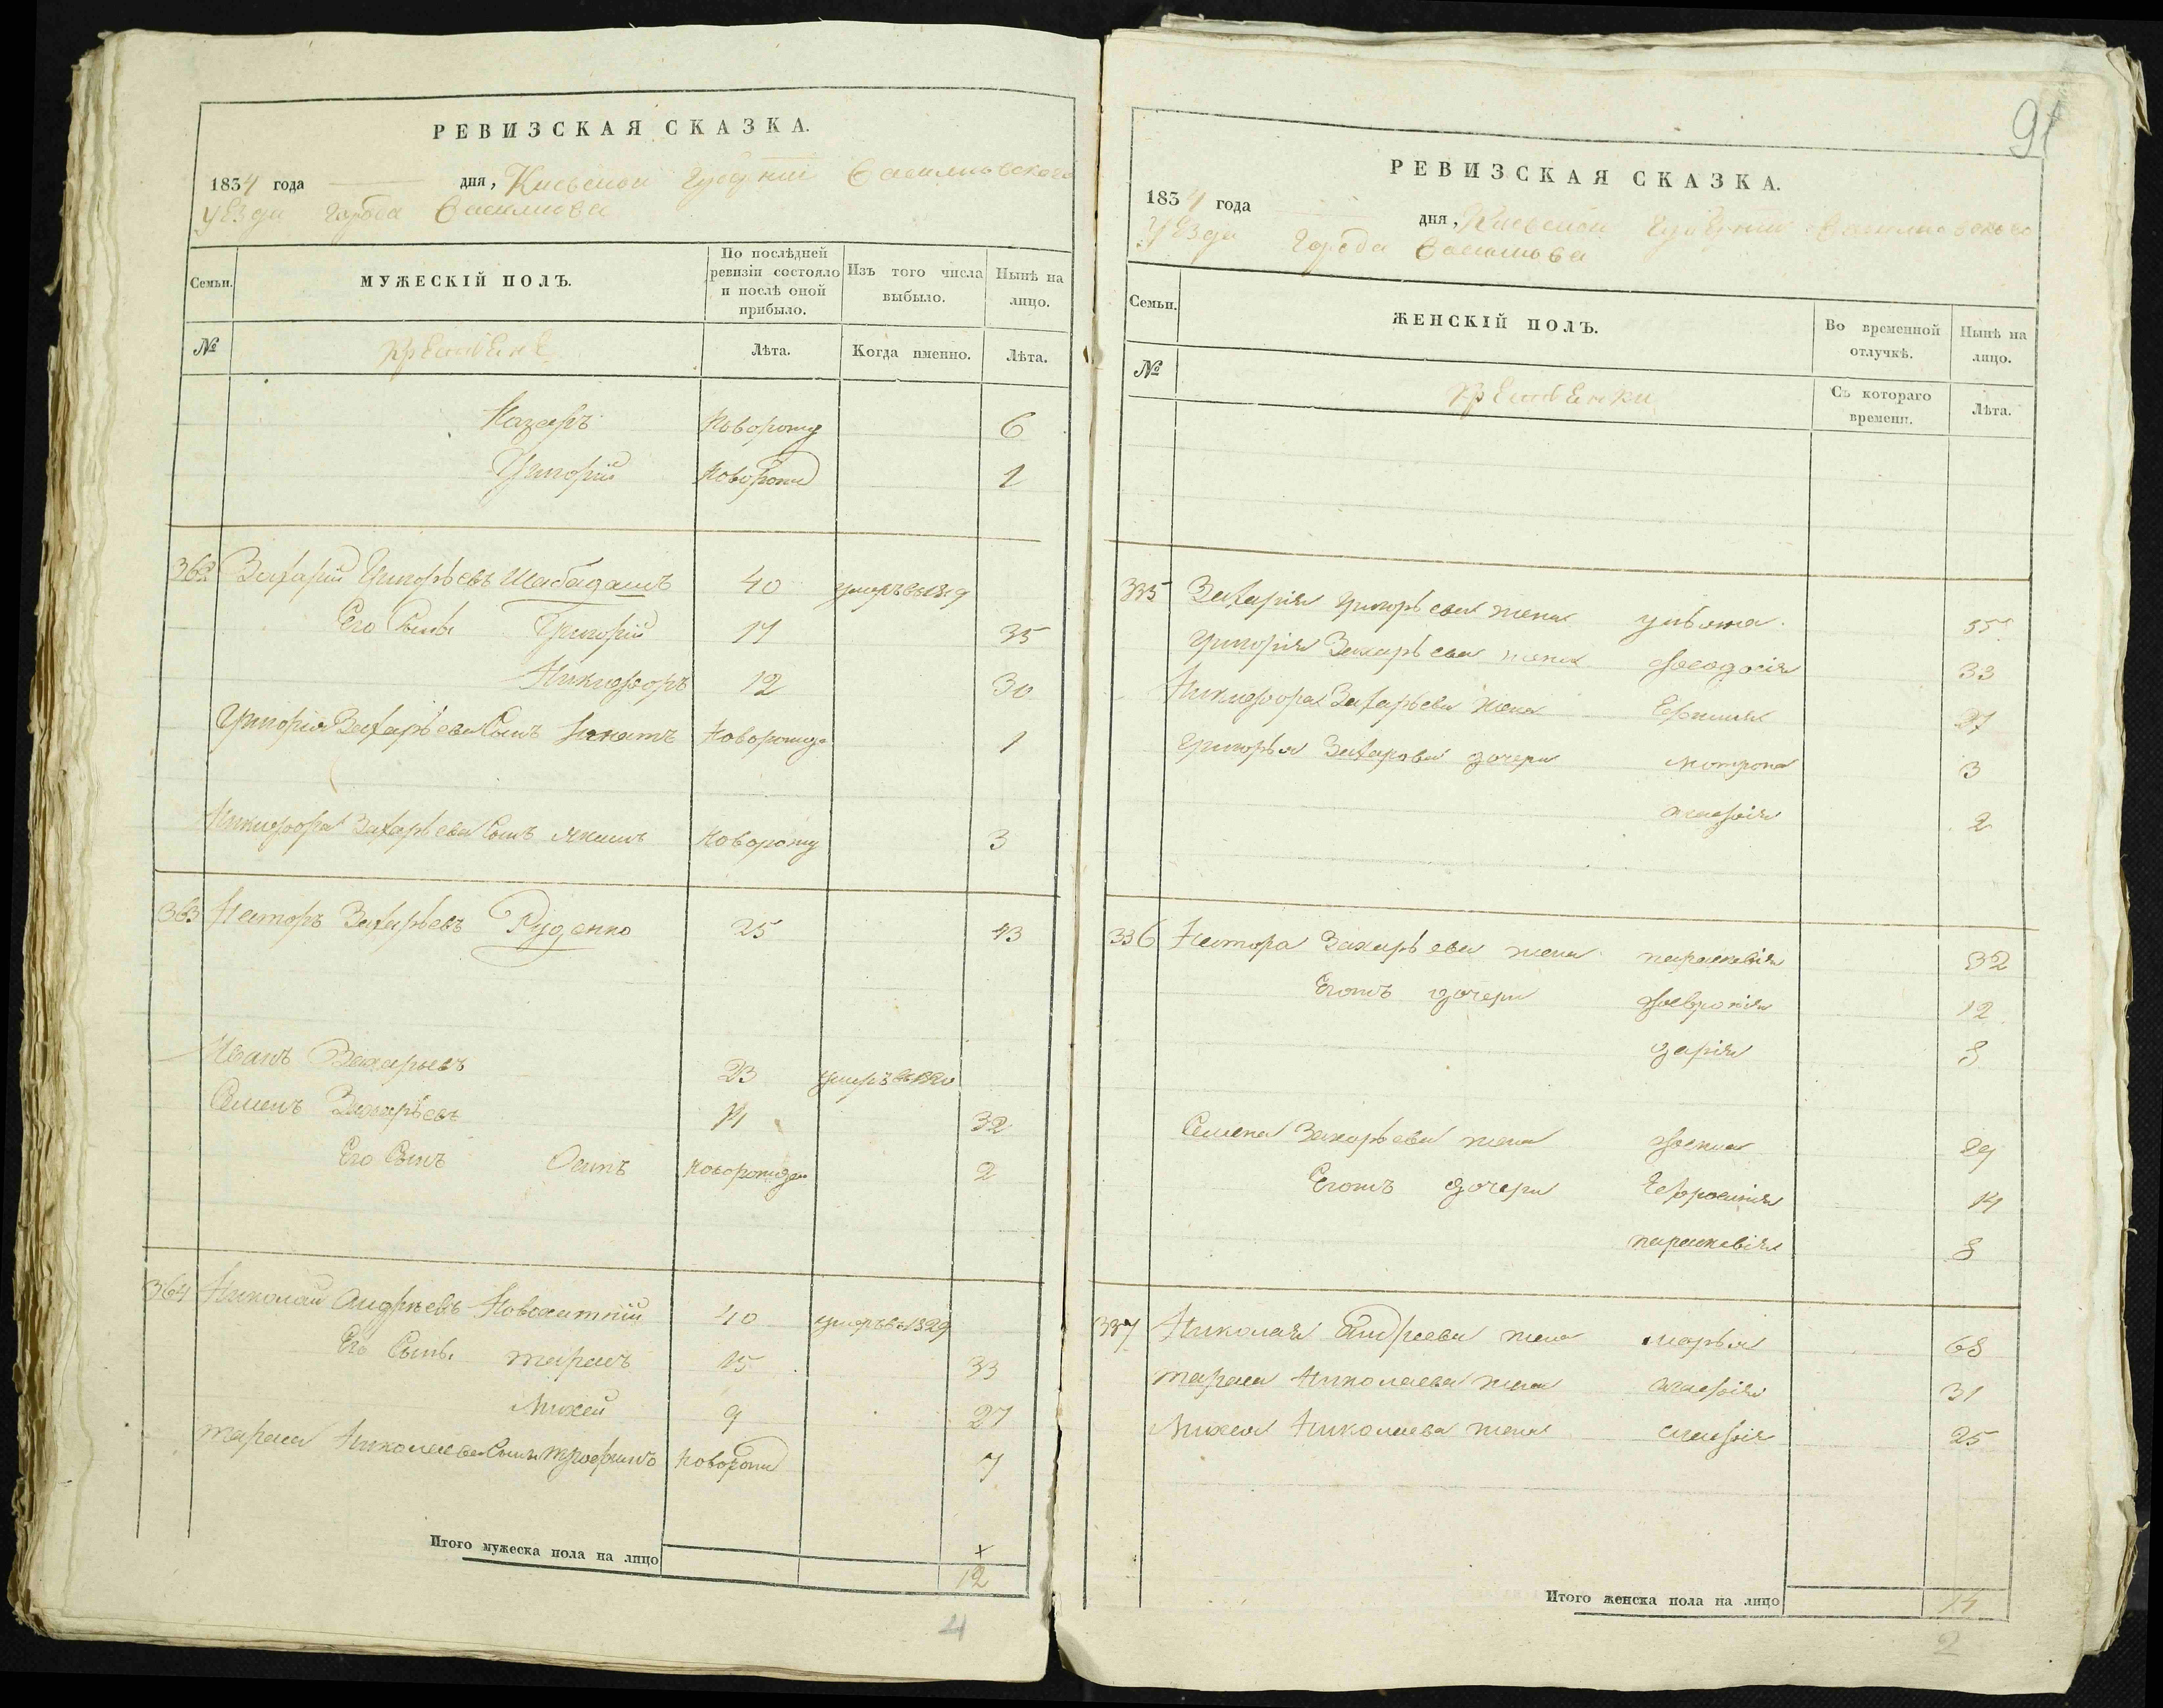 РЕВИЗСКАЯ СКАЗКА.
1834 года дня, Киевской Губернии Васильковского
уезда города Василькова
Семьи. МУЖЕСКІЙ ПОЛЪ. По послѣдней ревизіи состояло и послѣ оной прибыло. Изъ того числа выбыло. Нынѣ на лицо.
№ крестьяне Лѣта. Когда именно. Лѣта.
Назаръ Новорожд 6
Григорій Новорожд 1
362 Захарій Григорьевъ Шабадашъ 40 умеръ въ 1819
Его Сынъ Григорій 17 35
Никифоръ 12 30
Григорія Захарьева Сынъ Игнатъ Новорожд 1
Никифора Захарьева Сынъ Якимъ Новорожд 3
363 Несторъ Захарьевъ Руденко 25 43
Иванъ Захарьевъ 23 умеръ въ 1820
Семенъ Захарьевъ 14 32
Его Сынъ Осипъ Новорожден 2
364 Николай Андреевъ Новохатній 40 умеръ въ 1829
Его Сынъ Тарасъ 15 33
Михей 9 27
Тараса Николаева Сынъ Трофимъ Новорожд 7
Итого мужеска пола на лицо 12
4
91
РЕВИЗСКАЯ СКАЗКА.
1834 года дня, Киевской Губерніи Васильковскаго
уезда города Василькова
Семьи. ЖЕНСКІЙ ПОЛЪ. Во временной отлучкѣ. Нынѣ на лицо.
№ крестьянки Съ котораго времени. Лѣта.
335 Захарія Григорьева жена Ульяна 55
Григорія Захарьева жена Феодосія 33
Никифора Захарьева жена 27
Григорья Захарова дочери Мотрона 3
Агафія 2
336 Нестора Захарьева жена Параскевія 32
Егожъ дочери Февронія 12
Дарія 8
Семена Захарьева жена Фекла 29
Егожъ дочери Ефросинія 14
Параскевія 8
337 Николая Андреева жена Марья 68
Тараса Николаева жена Агафія 31
Михея Николаева жена Агафія 25
Итого женска пола на лицо 14
2